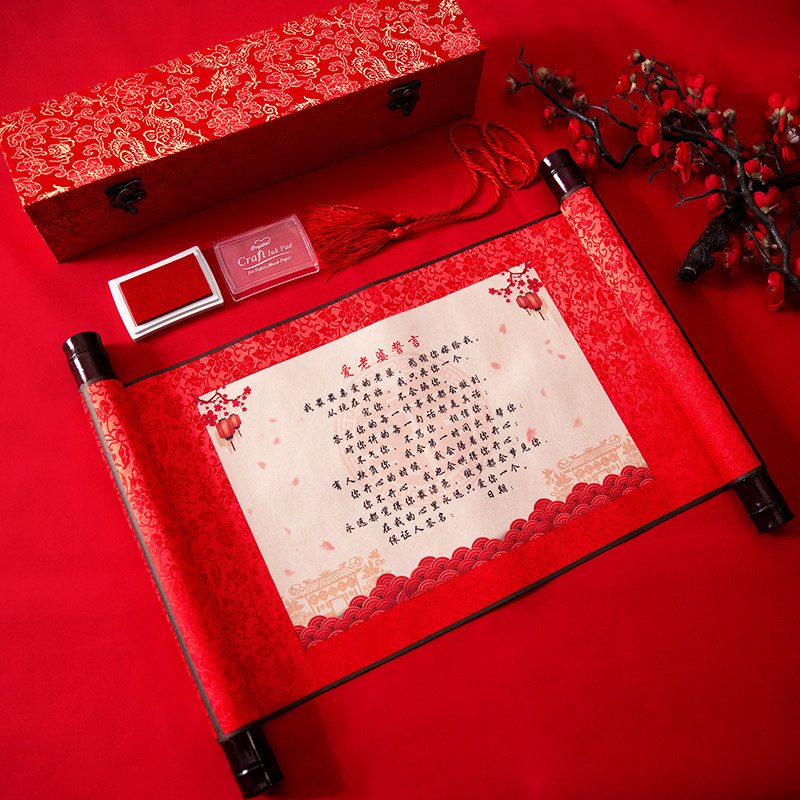 Craft Ink Pad
for Fabric Wood Paper
爱老婆誓言
我最最亲爱的老婆，感谢你嫁给我，
从现在开始，我只疼你一个，
宠你，不会骗你，
答应你的每一件事我都会做到，
对你讲的每一句话都是真话，
不气你，不骂你，相信你，
有人欺负你，我会第一时间来帮你；
你开心的时候，我会陪着你开心；
你不开心，我也会哄得你开心；
永远都觉得你最漂亮，做梦都会梦见你，
在我的心里永远只爱你一个。
保证人签名： 日期：